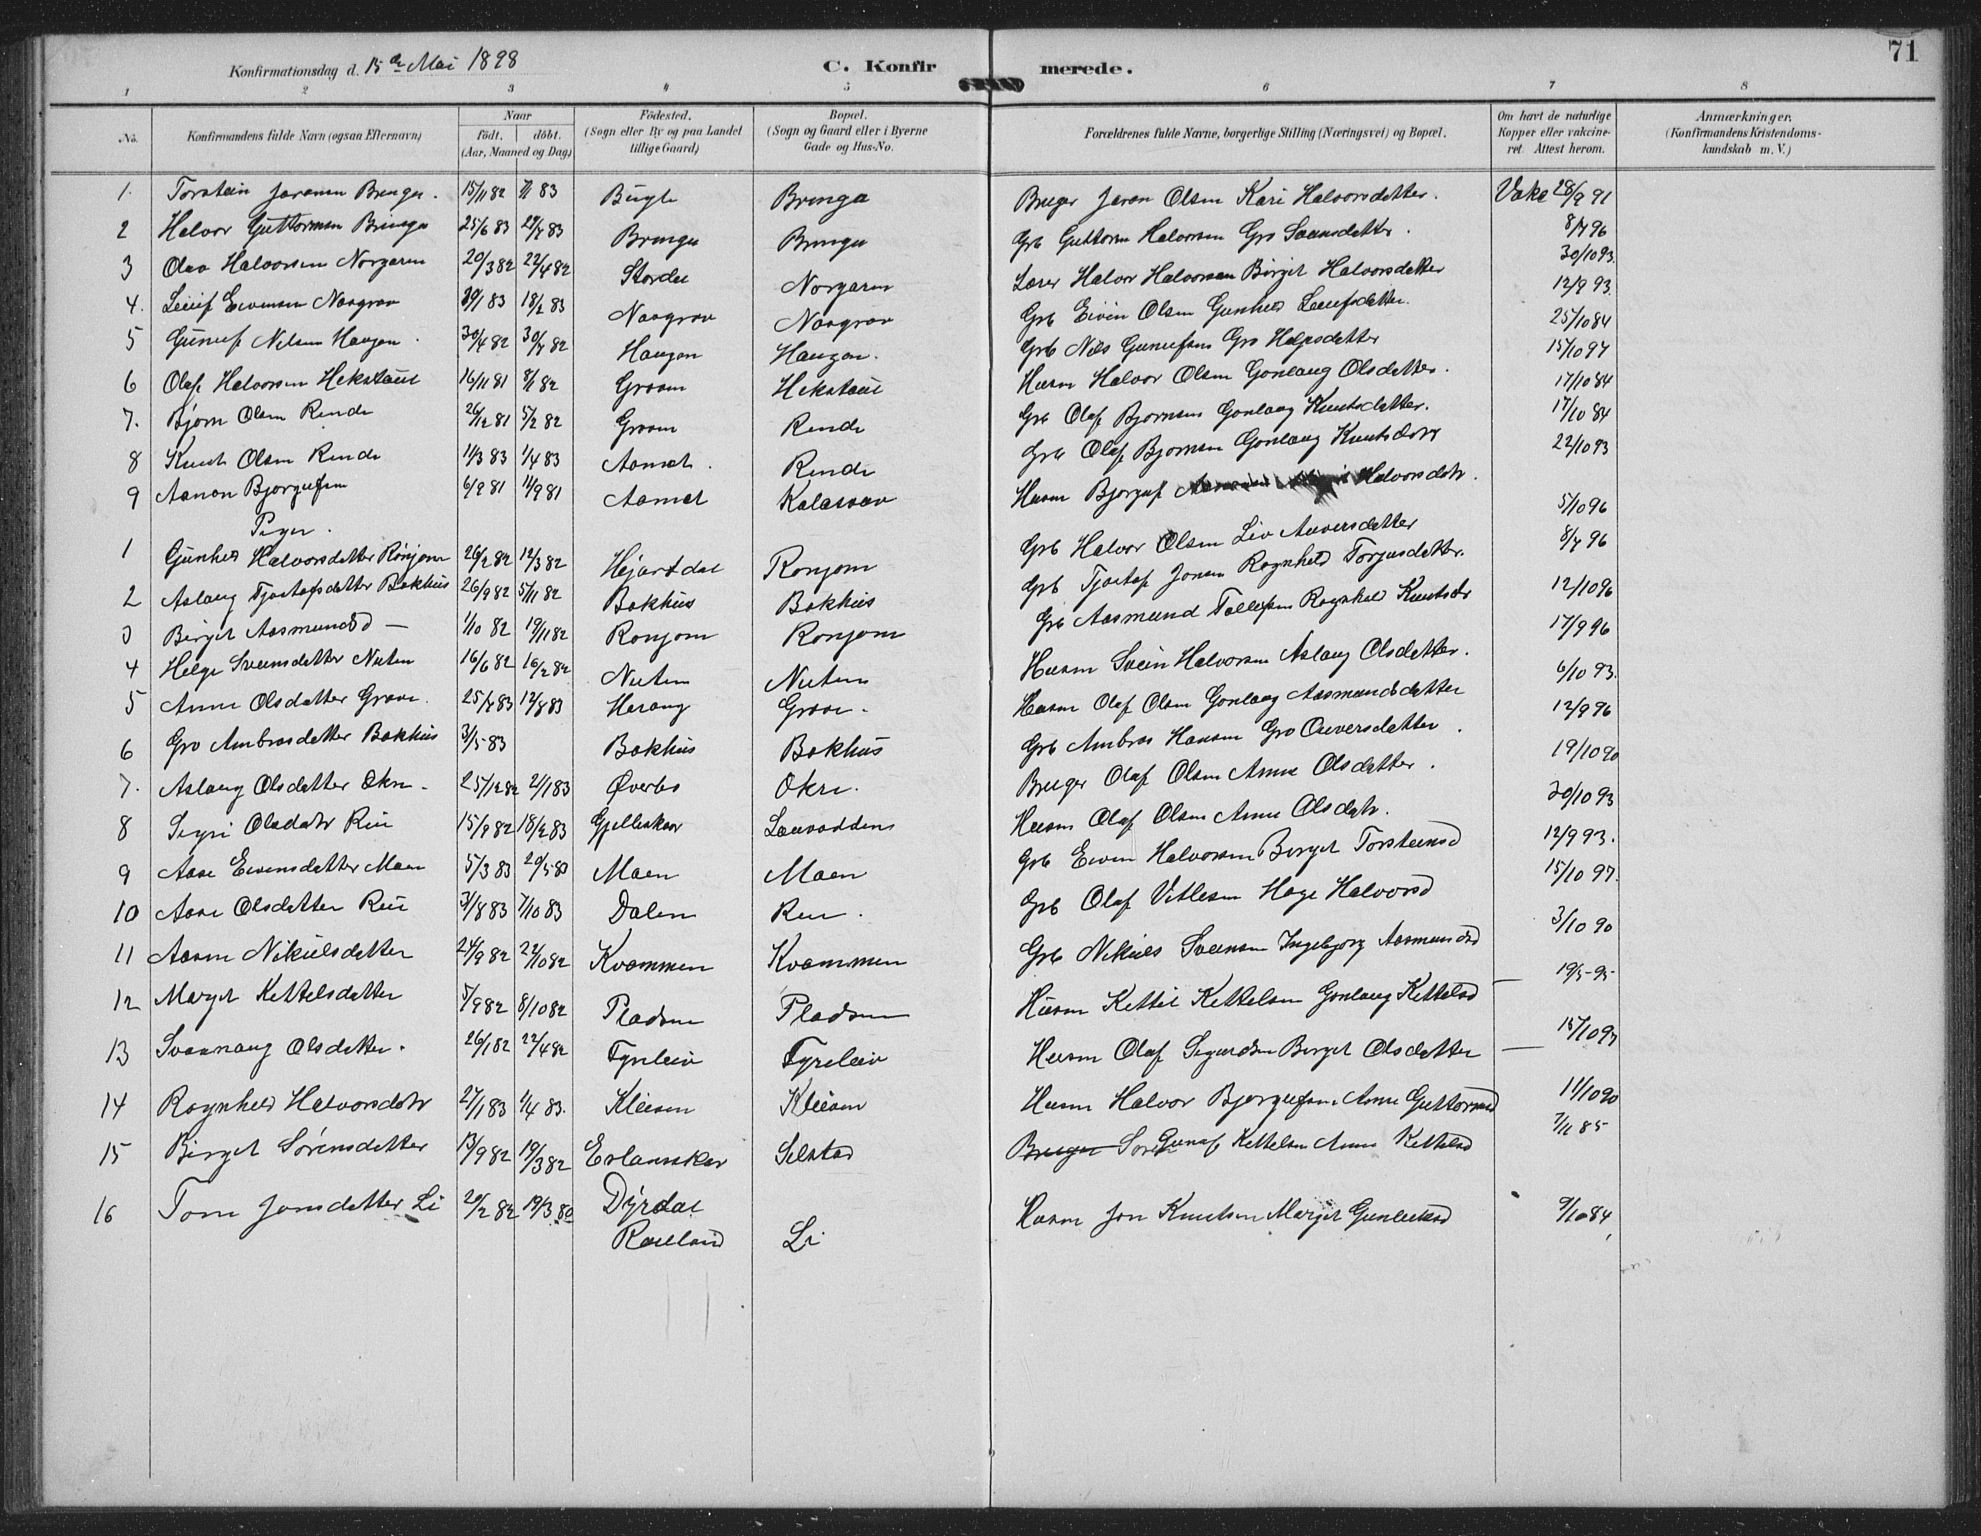 71
Konfirmationsdag d. 15de Mai 1898 C. Konfirmerede.
1 2 3 4 5 6 7 8
No. Konfirmandens fulde Navn (ogsaa Efternavn) Naar født, døbt. (Aar, Maaned og Dag) Fødested. (Sogn eller By og paa Landet tillige Gaard) Bopæl. (Sogn og Gaard eller i Byerne Gade og Hus-No. Forældrenes fulde Navne, borgerlige Stilling (Næringsvei) og Bopæl. Om havt de naturlige Kopper eller vakcineret. Attest herom. Anmærkninger. (Konfirmandens Kristendomskundskab m. V.)
1. Torstein Jaransen Bringa. 15/11 82 83 Bringa Bruger Jaran Olsen Kari Halvorsdatter. Vakc 28/9 91
2 Halvor Guttormsen Bringa 25/6 83 83 Bringa Bringa Grb Guttorm Halvorsen Gro Svensdatter. 96
3 Olav Halvorsen Norgaren 20/3 82 22/4 82 Stordal Norgaren Lærer Halvor Halvorsen Birgit Halvorsdatter 30/10 93.
4. Leiuf Eivensen Naagrav 83 18/2 83 Naagrav Naagrav Grb Eivin Olsen Gunhild Leiufsdatter. 12/9 93.
5 Gunuf Nilsen Haugen 30/4 82 82 Haugen Haugen. Grb Nils Gunufsen Gro Helgesdatter 25/10 84
6 Olaf Halvorsen Hekstaul 16/11 81 8/1 82 Groven Hekstaul Husm Halvor Olsen Gonlaug Olsdatter. 15/10 97
7. Bjørn Olsen Rende 26/12 81 5/2 82 Groven Rende Grb Olaf Bjørnsen Gonlaug Knutsdatter. 17/10 84
8 Knut Olsen Rende 11/3 83 1/4 83 Aamot. Rende Grb Olaf Bjørnsen Gonlaug Knutsdatr 17/10 84
9 Aanon Bjørgufsen 6/8 81 11/9 81 Aamot Kalasvav Husm Bjørguf Halvorsdatr. 22/10 93
Piger.
1 Gunhild Halvorsdatter Rønjom 26/2 82 12/3 82 Hjartdal Ronjom Grb Halvor Olsen Liv Auversdatter 5/10 96
2 Aslaug Tjostofsdatter Bakhus 26/9 82 5/11 82 Bakhus Bakhus Grb Tjostof Jonsen Ragnhild Torjusdatter. 96
3 Birgit Aasmundsd — 1/10 82 19/11 82 Ronjom Ronjom Grb Aasmund Tallefsen Ragnhild Knutsdr 12/10 96
4 Helge Sveinsdatter Nuten 16/6 82 82 Nuten Nuten Husm Svein Halvorsen Aslaug Olsdatter. 17/9 96
5 Anne Olsdatter Grave. 83 12/8 83 Heraug Grave. Husm Olaf Olsen Gonlaug Aasmundsdatter 6/10 93.
6 Gro Ambrosdatter Bakhus 3/5 83 Bakhus Bakhus Grb Ambros Hansen Gro Auversdatter. 12/9 96
7. Aslaug Olsdatter Økri. 25/12 82 2/1 83 Øverbø Økri. Bruger Olaf Olsen Anne Olsdatter. 19/10 90
8 Sigri Olsdatr Rui 15/9 82 18/2 83 Gjelleskar Lauvodden Husm Olaf Olsen Anne Olsdatr. 30/10 93
9 Aase Eivensdatter Moen 5/3 83 20/5 83 Moen Moen Grb Eiven Halvorsen Birgit Torsteinsd 12/9 93.
10 Aase Olsdatter Rui 31/8 83 7/10 83 Dalen Rui. Grb Olaf Vetlesen Hæge Halvorsd 15/10 97.
11 Aasne Nikulsdatter 24/9 82 22/10 82 Kvammen Kvammen Grb Nikuls Sveinsen Ingebjørg Aasmundsd 3/10 90
12 Margit Kettelsdatter 5/9 82 8/10 82 Pladsen Pladsen Husm Kettil Kettelsen Gonlaug Kettelsd — 19/5 95
13 Svannaug Olsdatter. 26/1 82 22/4 82 Tyrileiv Tyrileiv Husm Olaf Sigurdsen Birgit Olsdatter — 15/10 97
14 Ragnhild Halvorsdatr 27/1 83 1/4 83. Kleiven Kleiven Husm Halvor Bjørgufsen Anne Guttormsd 11/10 90
15 Birgit Sørensdatter 13/9 82 19/3 82 Erlansskar Selstad Bruger Gunuf Kettelsen Anne Kettelsd 7/11 85
16 Tone Jonsdatter Li 20/2 82 19/3 82 Dyrdal Husm Jon Knutsen Margit Gunleiksd 9/10 84
Rauland Li